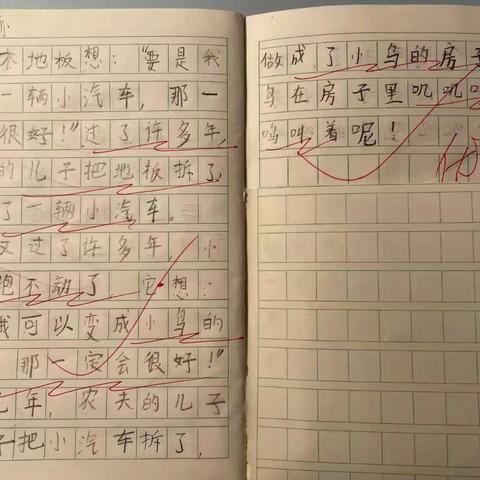 木地板想：“要是我
一辆小汽车，那一
很好！”过了许多年，
的儿子把地板拆了，
了一辆小汽车。
又过了许多年，小
跑不动了 它想：
我可以变成小鸟的
那一定会很好！”
年，农夫的儿子
子把小汽车拆了，
做成了小鸟的房子
鸟在房子里叽叽
鸣叫着呢！